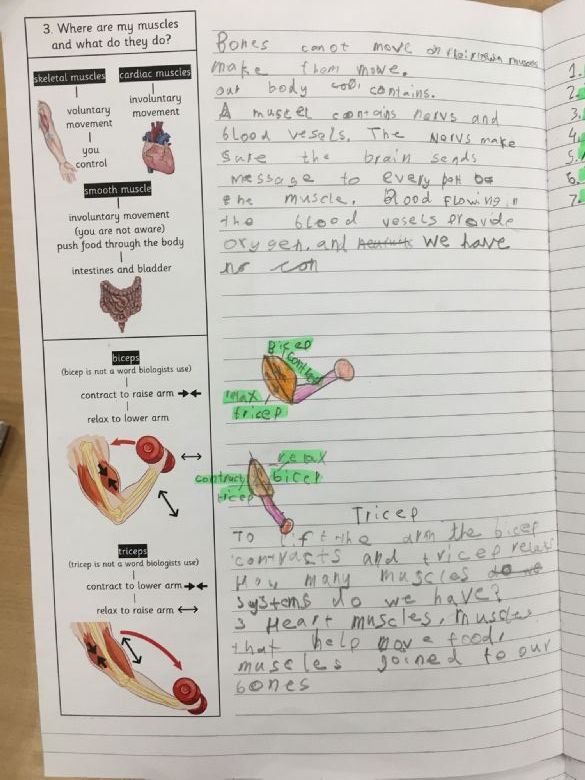 3. Where are my muscles
and what do they do?
skeletal muscles
voluntary
movement
you
control
cardiac muscles
involuntary
movement
smooth muscle
involuntary movement
(you are not aware)
push food through the body
intestines and bladder
biceps
(bicep is not a word biologists use)
contract to raise arm
relax to lower arm
triceps
(tricep is not a word biologists use)
contract to lower arm
relax to raise arm
Bones canot move on muscels
make them move.
our body contains.
A muscel contains nervs and
blood vesals. The Nervs make
sure the brain sends
message to every part of
the muscle. Blood flowing in
the blood vesels provide
oxygen. and we have
no con
Bicep
contract
relax
tricep
relax
contract bicep
tricep
Tricep
To lift the arm the bicep
contracts and tricep relax
How many muscles do we
systoms do we have?
3 Heart muscles, muscles
that help move food,
muscles joined to our
bones
1.
2.
3.
4.
5.
6.
7.